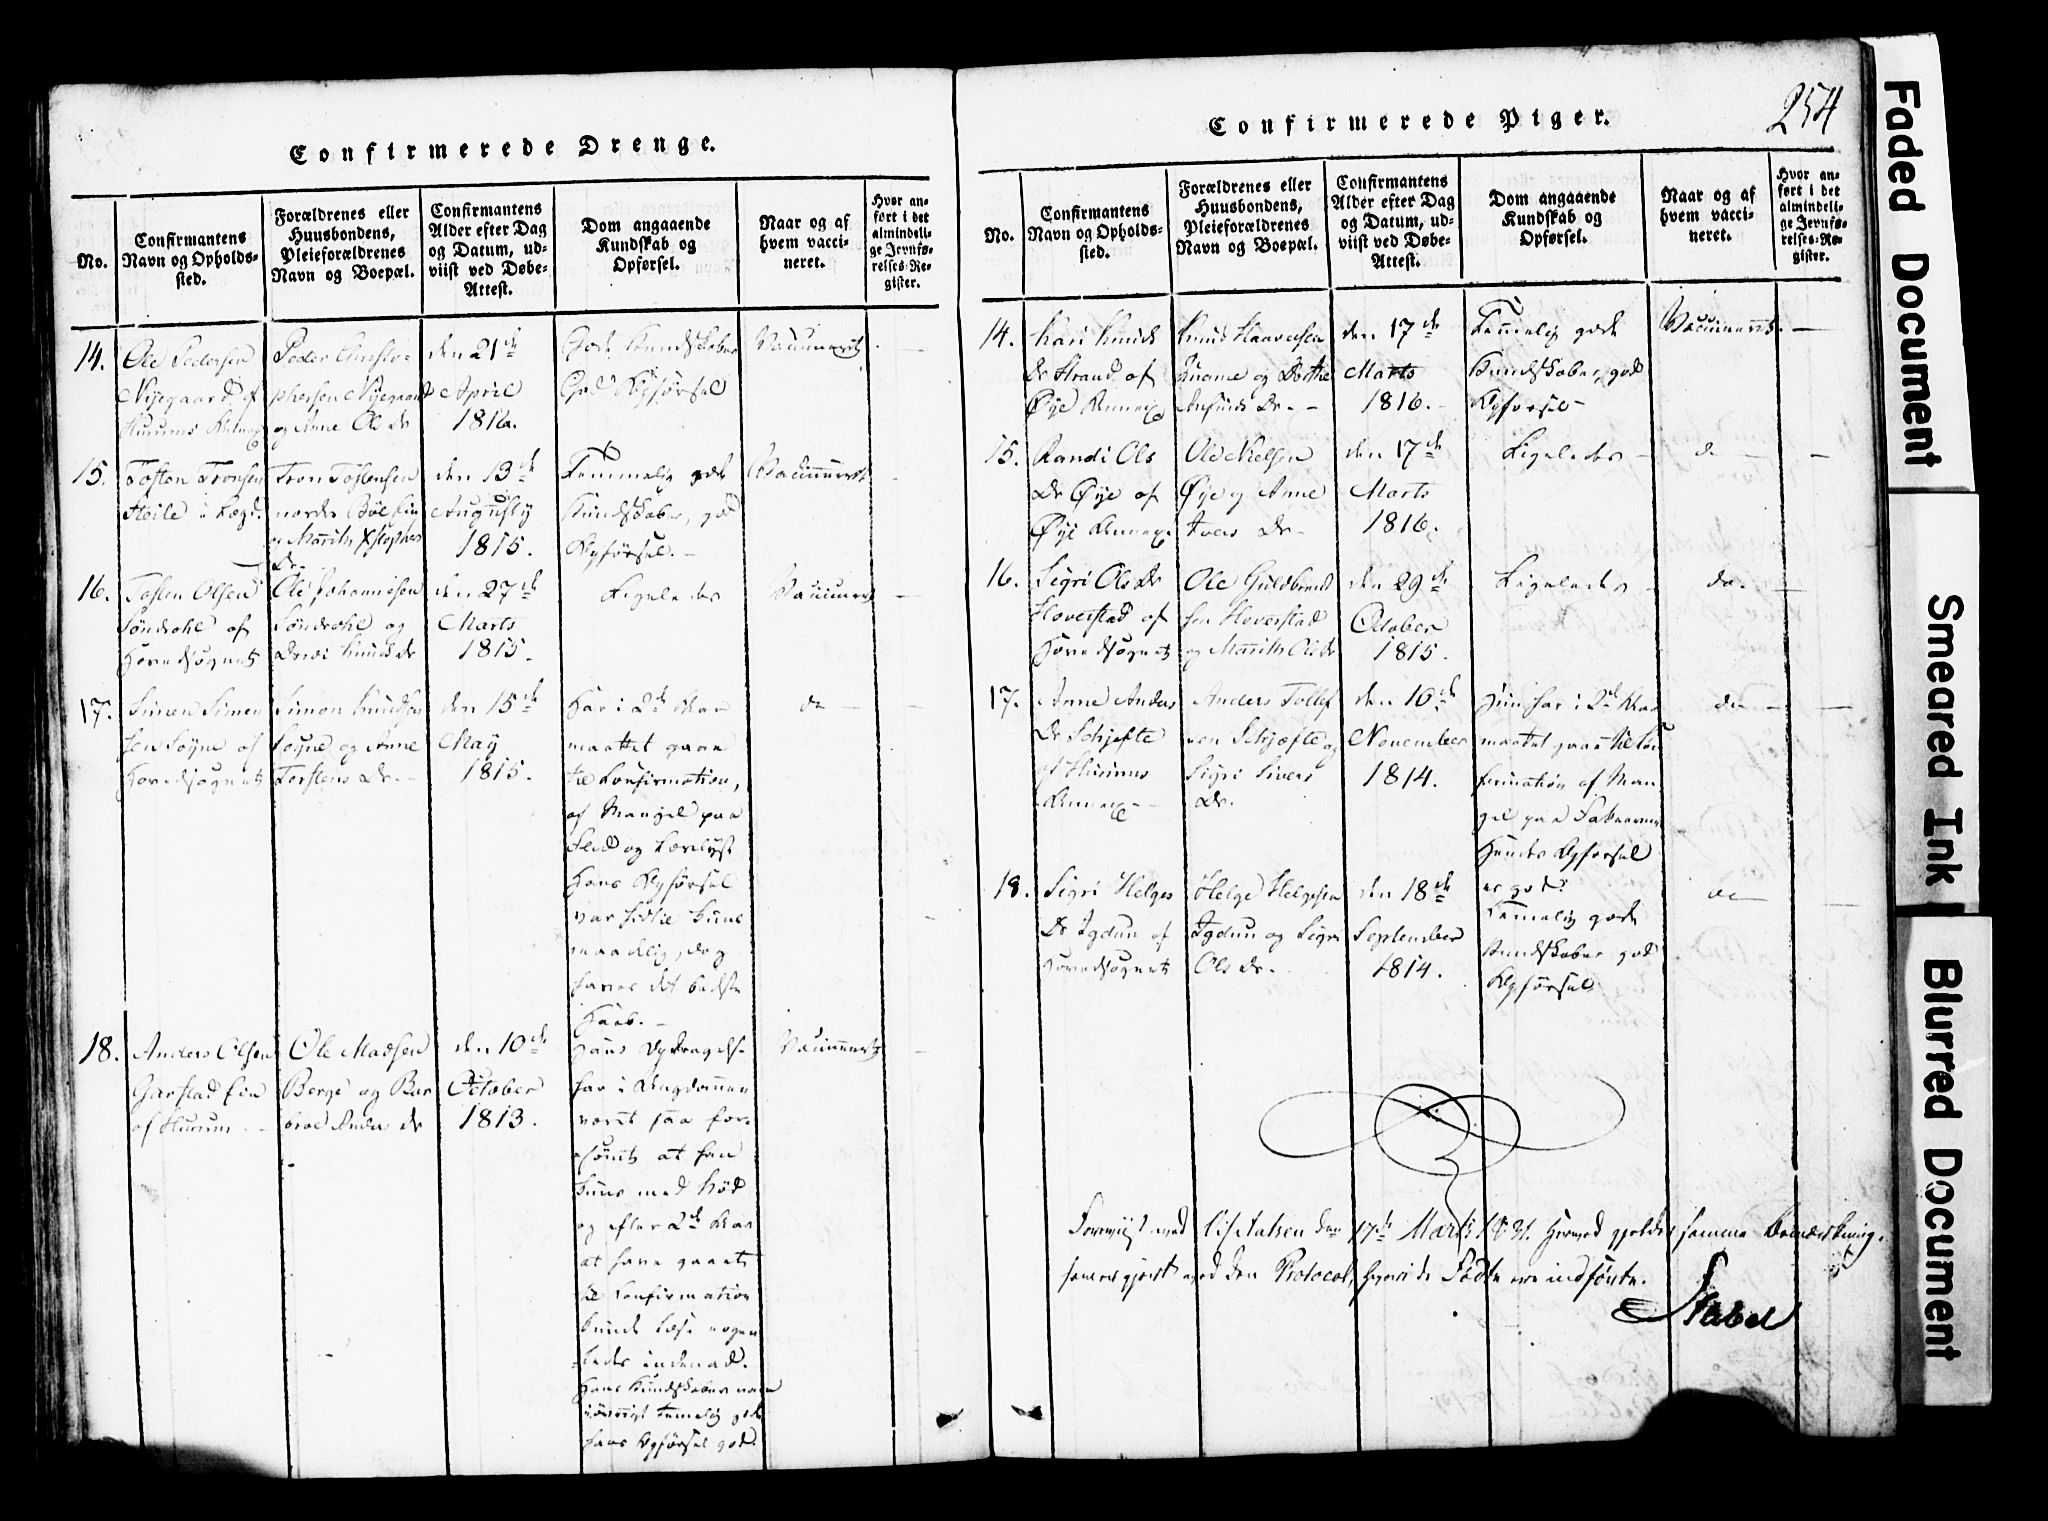 254
Confirmerede Drenge.
No.
Confirmantens
Navn og Opholds-
sted.
Forældrenes eller
Huusbondens,
Pleieforældrenes
Navn og Boepæl.
Confirmantens
Alder efter Dag
og Datum, ud-
viist ved Døbe-
Attest.
Dom angaaende
Kundskab og
Opførsel.
Naar og af
hvem vacci-
neret.
Hvor an-
ført i det
almindeli-
ge Jevnfø-
relses-Re-
gister.
14.
Ole Pedersen
Nÿegaard af
Hurums
Peder Christo-
phersen Nÿegaard
og Anne Ols Dr
den 21de
April
1816.
Gode Kundskaber
God Opførsel
Vaccineret
15.
Tosten Tronsen
Tron Tostensen
nordre
og Marith
Dr.
den 13de
Augusty
1815.
Temmelig gode
Kundskaber, god
Opførsel.
Vaccineret
16.
Tosten Olsen
Søndrohl af
Hovedsognet
Ole Johannesen
Søndrohl og
Knuds Dr
den 27de
Marts
1815.
Ligeledes
Vaccineret
17.
Simen Simen
sen Søyne af
Hovedsognet
Simon Knudsen
Søyne og Anne
Torstens Dr.
den 15de
May
1815.
Har i 2de Aar
maattet gaae
til Confirmation,
af Mangel paa
Flid og Lærelyst
Hans Opførsel
var hidtil kune
maadelig, dog
haves det bedste
Haab.
do
18.
Anders Olsen
Garstad
af Hurum
Ole Madsen
Berge og Bar
broe Anders Dr
den 10de
October
1813.
Hans Opdragelse
har i Ungdommen
været saa for-
sømt at han
kuns med Nød
og efter 2de Aar
at have gaaet
til Confirmation
kunde læse nogen
ledes indenad.
Hans Kundskaber vare
iøvrigt temelig gode
hans Opførsel god.
Vaccineret
Confirmerede Piger.
No.
Confirmantens
Navn og Opholds-
sted.
Forældrenes eller
Huusbondens,
Pleieforældrenes
Navn og Boepæl.
Confirmantens
Alder efter Dag
og Datum, ud-
viist ved Døbe-
Attest.
Dom angaaende
Kundskab og
Opførsel.
Naar og af
hvem vacci-
neret.
Hvor an-
ført i det
almindeli-
ge Jevnfø-
relses-Re-
gister.
14.
Kari Knuds
Dr Strand af
Øÿe Annex
Knud Haaversen
og Dorthe
Dr.
den 17de
Marts
1816.
Temmelig gode
Kundskaber, god
Opførsel
Vaccineret.
15.
Randi Ols
Dr Øÿe af
Øÿe Annex.
Ole Nielsen
Øÿe og Anne
Ivers Dr
den 17de
Marts
1816.
Ligeledes
do
16.
Sigri Ols Dr
Hoverstad af
Hovedsognet
Ole Guldbrand
sen Hoverstad
og Marith Ols Dr
den 29de
October
1815.
Ligeledes
do.
17.
Anne Anders
Dr Schjefte
af Hurums
Annex
Anders Tollef
sen Schjefte og
Sigri Sivers
Dr.
den 16de
November
1814.
Hun har i 2de Aar
maattet gaae til Con
firmation af Man
gel paa
Hendes Opførsel
er god.
do
18.
Sigri Helges
Dr Igdun af
Hovedsognet
Helge Helgesen
Igdun og Sigri
Ols Dr.
den 18de
September
1814.
Temelig gode
Kundskaber god
Opførsel
do
Foreviist ved Visitatsen den 17de Marts 1831. Herved gjelder samme Bemærkning,
som er gjort ved den Protocol, hvori de Fødte ere indførte.
Stabel
Faded Document
Smeared Ink
Blurred Document